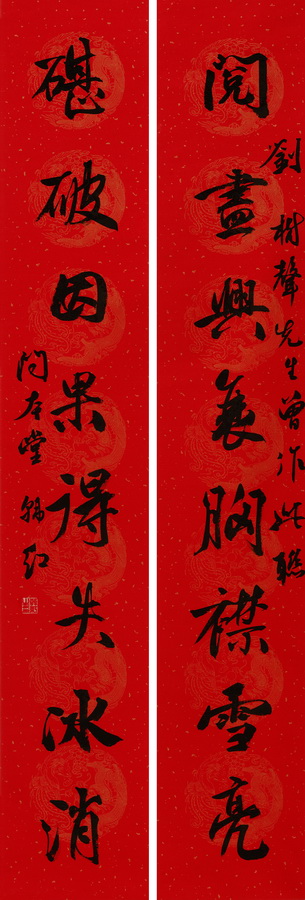 閱盡興衰胸襟雪亮
劉樹聲先生曾作此聯
碪破因果得失冰消
問本堂 錦紅